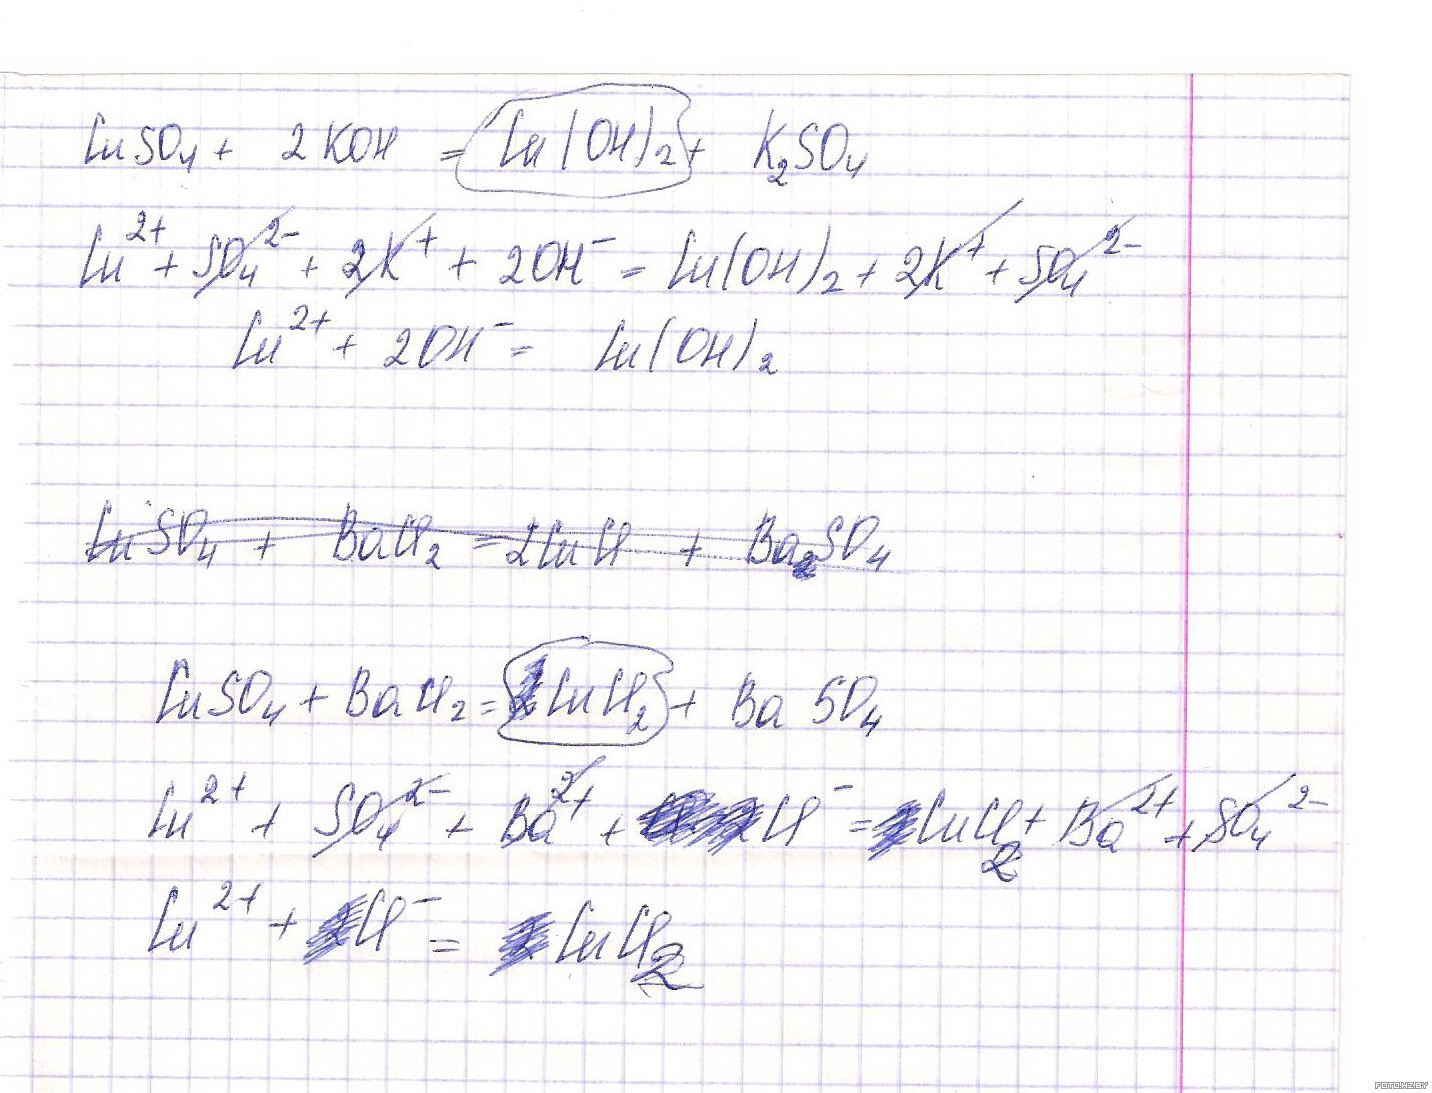 CuSO₄ + 2KOH = Cu(OH)₂ + K₂SO₄
Cu²⁺ + SO₄²⁻ + 2K⁺ + 2OH⁻ = Cu(OH)₂ + 2K⁺ + SO₄²⁻
Cu²⁺ + 2OH⁻ = Cu(OH)₂
CuSO₄ + BaCl₂ = 2CuCl + Ba₂SO₄
CuSO₄ + BaCl₂ = CuCl₂ + BaSO₄
Cu²⁺ + SO₄²⁻ + Ba²⁺ + Cl⁻ = CuCl₂ + Ba²⁺ + SO₄²⁻
Cu²⁺ + Cl⁻ = CuCl₂
FOTO.HZ.BY